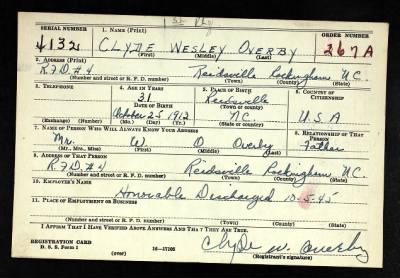 SERIAL NUMBER
1. NAME (Print)
ORDER NUMBER
CLYDE WESLEY OVERBY
267A
(First) (Middle) (Last)
2. ADDRESS (Print)
R.F.D. #4 Reidsville Rockingham N.C.
(Number and street or R. F. D. number) (Town) (County) (State)
3. TELEPHONE
4. AGE IN YEARS
5. PLACE OF BIRTH
6. COUNTRY OF CITIZENSHIP
31
Reidsville
DATE OF BIRTH
(Town or county)
October 25 1912
N.C.
U S A
(Exchange) (Number) (Mo.) (Day) (Yr.) (State or country)
7. NAME OF PERSON WHO WILL ALWAYS KNOW YOUR ADDRESS
8. RELATIONSHIP OF THAT PERSON
Mr. W O Overby Father
(Mr., Mrs., Miss) (First) (Middle) (Last)
9. ADDRESS OF THAT PERSON
R.F.D. #4 Reidsville Rockingham N.C.
(Number and street or R. F. D. number) (Town) (County) (State)
10. EMPLOYER'S NAME
Honorable Discharged 10-5-45
11. PLACE OF EMPLOYMENT OR BUSINESS
(Number and street or R. F. D. number) (Town) (County) (State)
I AFFIRM THAT I HAVE VERIFIED ABOVE ANSWERS AND THAT THEY ARE TRUE.
REGISTRATION CARD
D. S. S. Form 1
(over)
16-17105
Clyde W. Overby
(Registrant's signature)